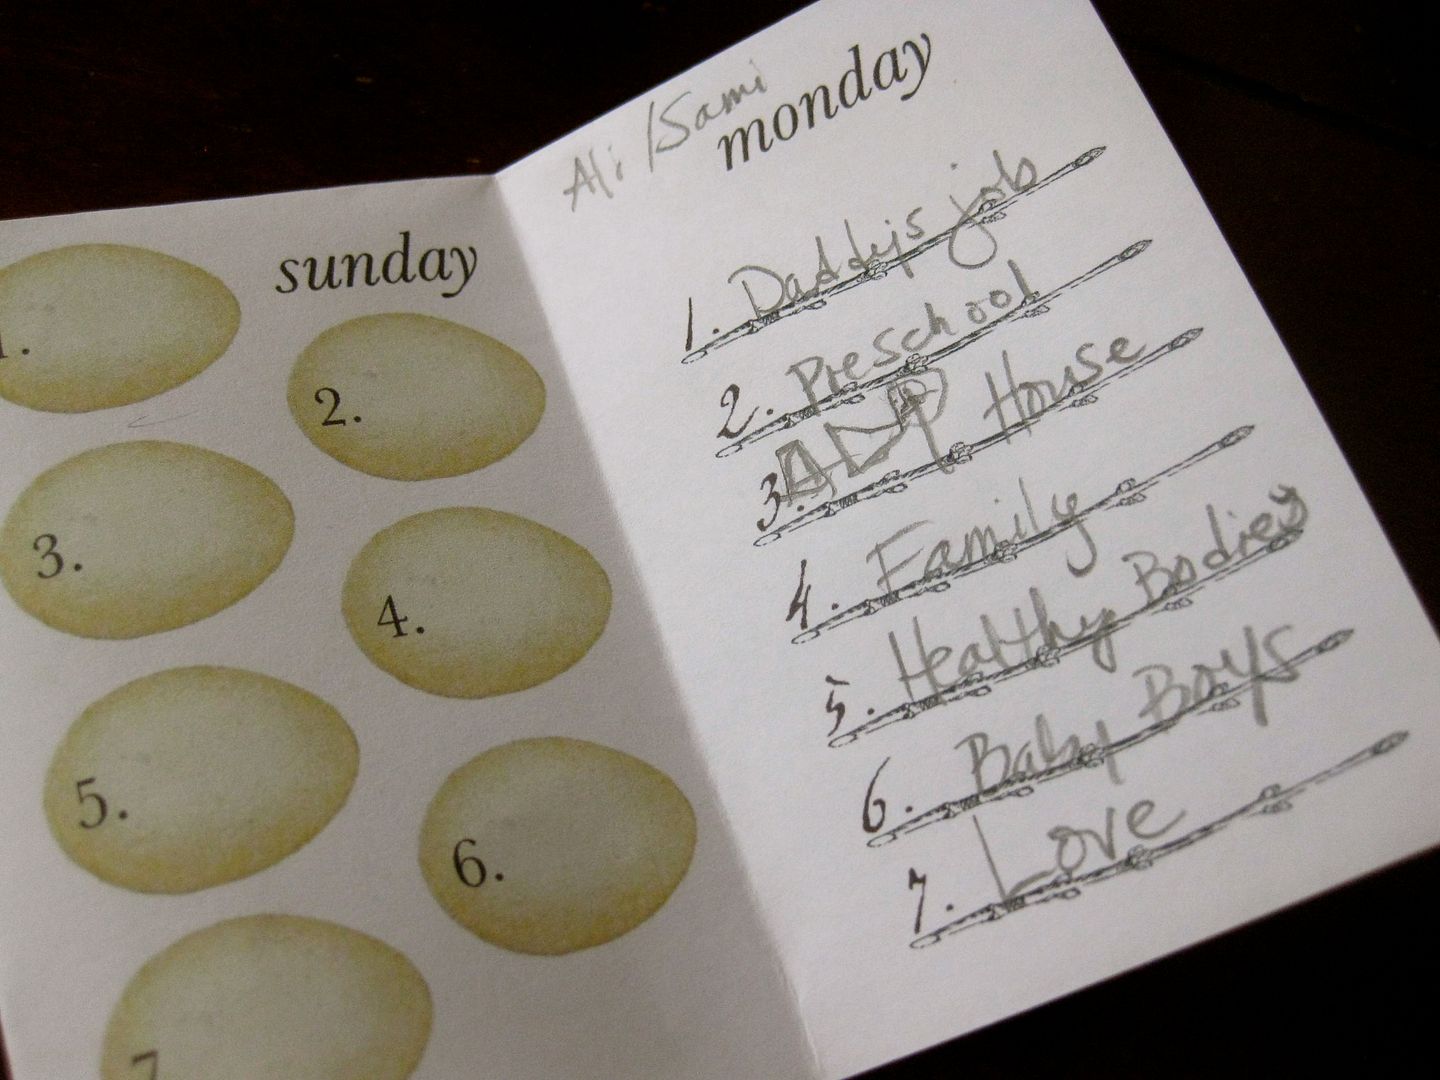 sunday
1.
2.
3.
4.
5.
6.
7
Ali / Sami
monday
1. Daddy's job
2. Preschool
3. House
4. Family
5. Healthy Bodies
6. Baby Boys
7. Love